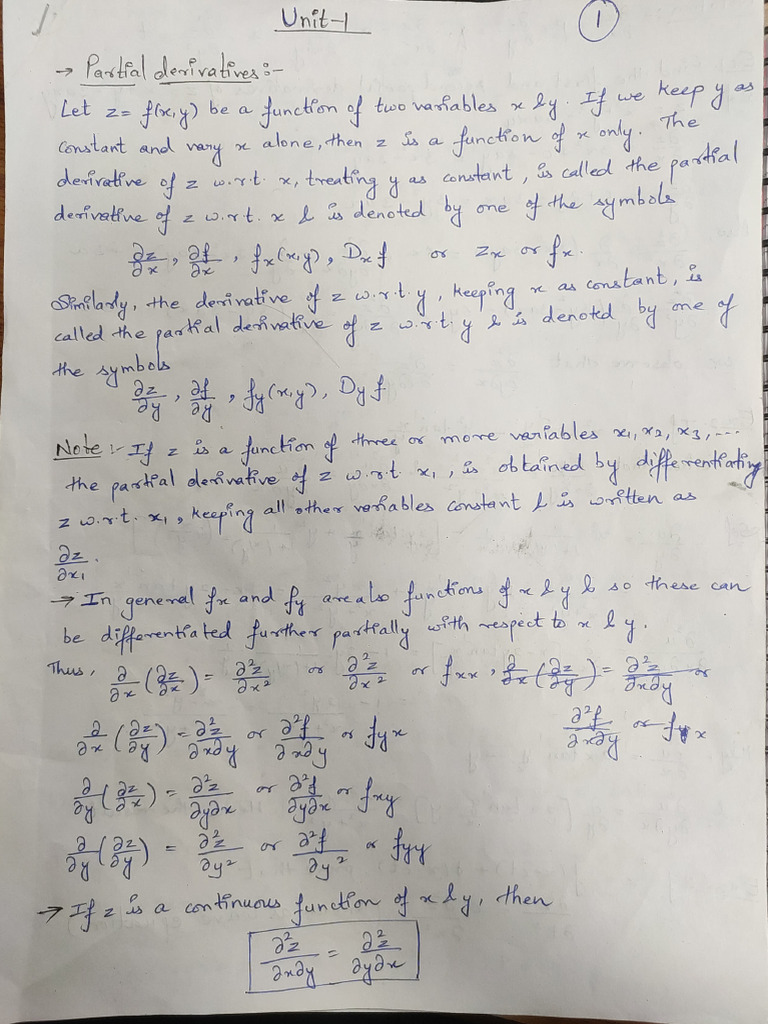 Unit-1
1
→ Partial derivatives :-
Let z = f(x,y) be a function of two variables x & y. If we keep y as
constant and vary x alone, then z is a function of x only. The
derivative of z w.r.t. x, treating y as constant, is called the partial
derivative of z w.r.t. x & is denoted by one of the symbols
∂z/∂x, ∂f/∂x, fx(x,y), Dxf or zx or fx.
Similarly, the derivative of z w.r.t. y, keeping x as constant, is
called the partial derivative of z w.r.t. y & is denoted by one of
the symbols
∂z/∂y, ∂f/∂y, fy(x,y), Dyf
Note :- If z is a function of three or more variables x1, x2, x3, ....
the partial derivative of z w.r.t x1, is obtained by differentiating
z w.r.t. x1, keeping all other variables constant & is written as
∂z/∂x1.
→ In general fx and fy are also functions of x & y & so these can
be differentiated further partially with respect to x & y.
Thus, ∂/∂x (∂z/∂x) = ∂²z/∂x² or ∂²z/∂x² or fxx, ∂/∂x (∂z/∂y) = ∂²z/∂x∂y or
∂²f/∂x∂y or fyx
∂/∂x (∂z/∂y) = ∂²z/∂x∂y or ∂²f/∂x∂y or fyx
∂/∂y (∂z/∂x) = ∂²z/∂y∂x or ∂²f/∂y∂x or fxy
∂/∂y (∂z/∂y) = ∂²z/∂y² or ∂²f/∂y² or fyy
→ If z is a continuous function of x & y, then
∂²z/∂x∂y = ∂²z/∂y∂x